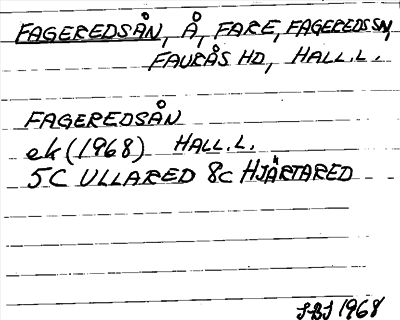 FAGEREDSÅN, Å, FARE, FAGEREDS SN,
FAURÅS HD, HALL.L.
FAGEREDSÅN
ek (1968) HALL.L.
5C ULLARED 8c HJÄRTARED
1968